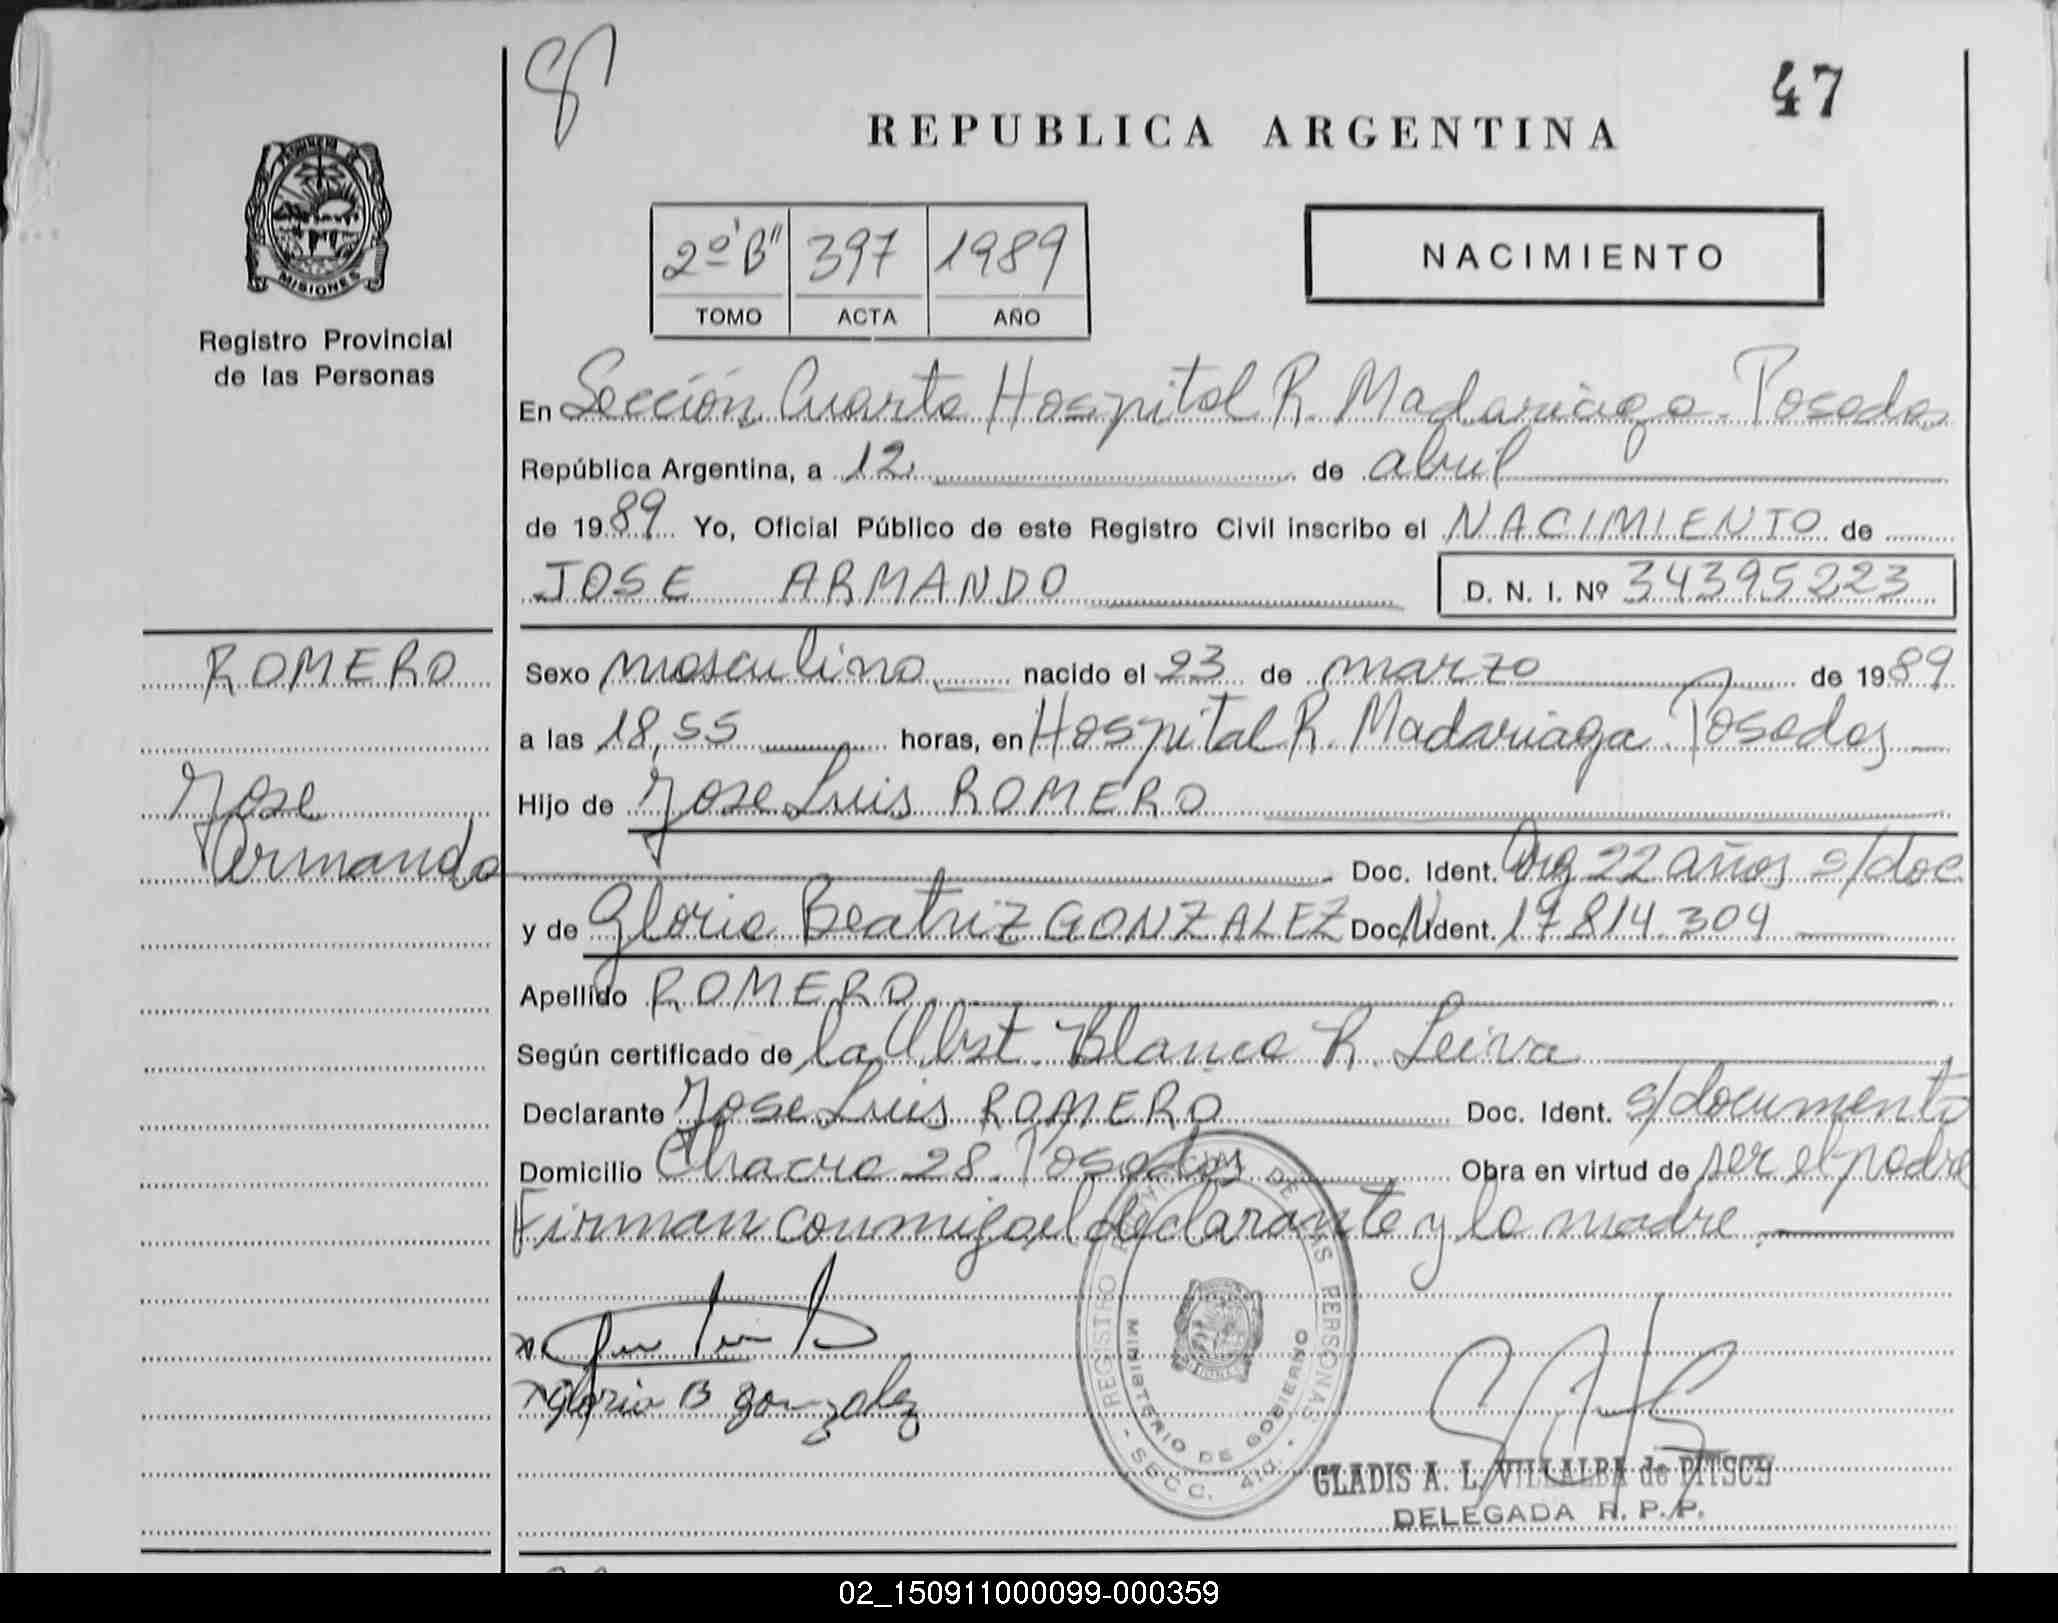 47
REPUBLICA ARGENTINA
PROVINCIA DE
MISIONES
Registro Provincial
de las Personas
2º "B" 397 1989
TOMO ACTA AÑO
NACIMIENTO
En Sección Cuarta Hospital R. Madariaga - Posadas
República Argentina, a 12 de abril
de 1989 Yo, Oficial Público de este Registro Civil inscribo el NACIMIENTO de
JOSE ARMANDO D. N. I. Nº 34395223
ROMERO
Jose
Armando
Sexo masculino nacido el 23 de marzo de 1989
a las 18,55 horas, en Hospital R. Madariaga. Posadas
Hijo de Jose Luis ROMERO
Doc. Ident. Arg 22 años s/doc
y de Gloria Beatriz GONZALEZ Doc. Ident. 17814.304
Apellido ROMERO
Según certificado de la Obst. Blanca R. Leiva
Declarante Jose Luis ROMERO Doc. Ident. s/documento
Domicilio Chacra 28. Posadas Obra en virtud de ser el padre
Firman conmigo el declarante y la madre
Gloria B gonzalez
REGISTRO PROVINCIAL DE LAS PERSONAS
MINISTERIO DE GOBIERNO
- SECC. 4ta. -
GLADIS A. L. VILLALBA de PITSCH
DELEGADA R. P. P.
02_150911000099-000359